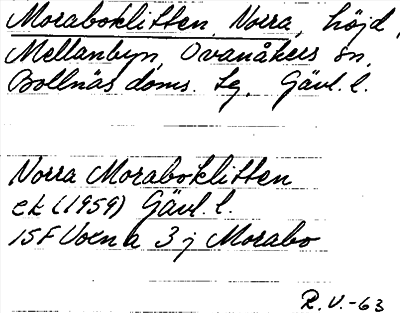 Moraboklitten, Norra, höjd,
Mellanbyn, Ovanåkers sn,
Bollnäs doms. tg, Gävl. l.
Norra Moraboklitten
ek (1959) Gävl. l.
15F Voxna 3 j Morabo
R.V.-63